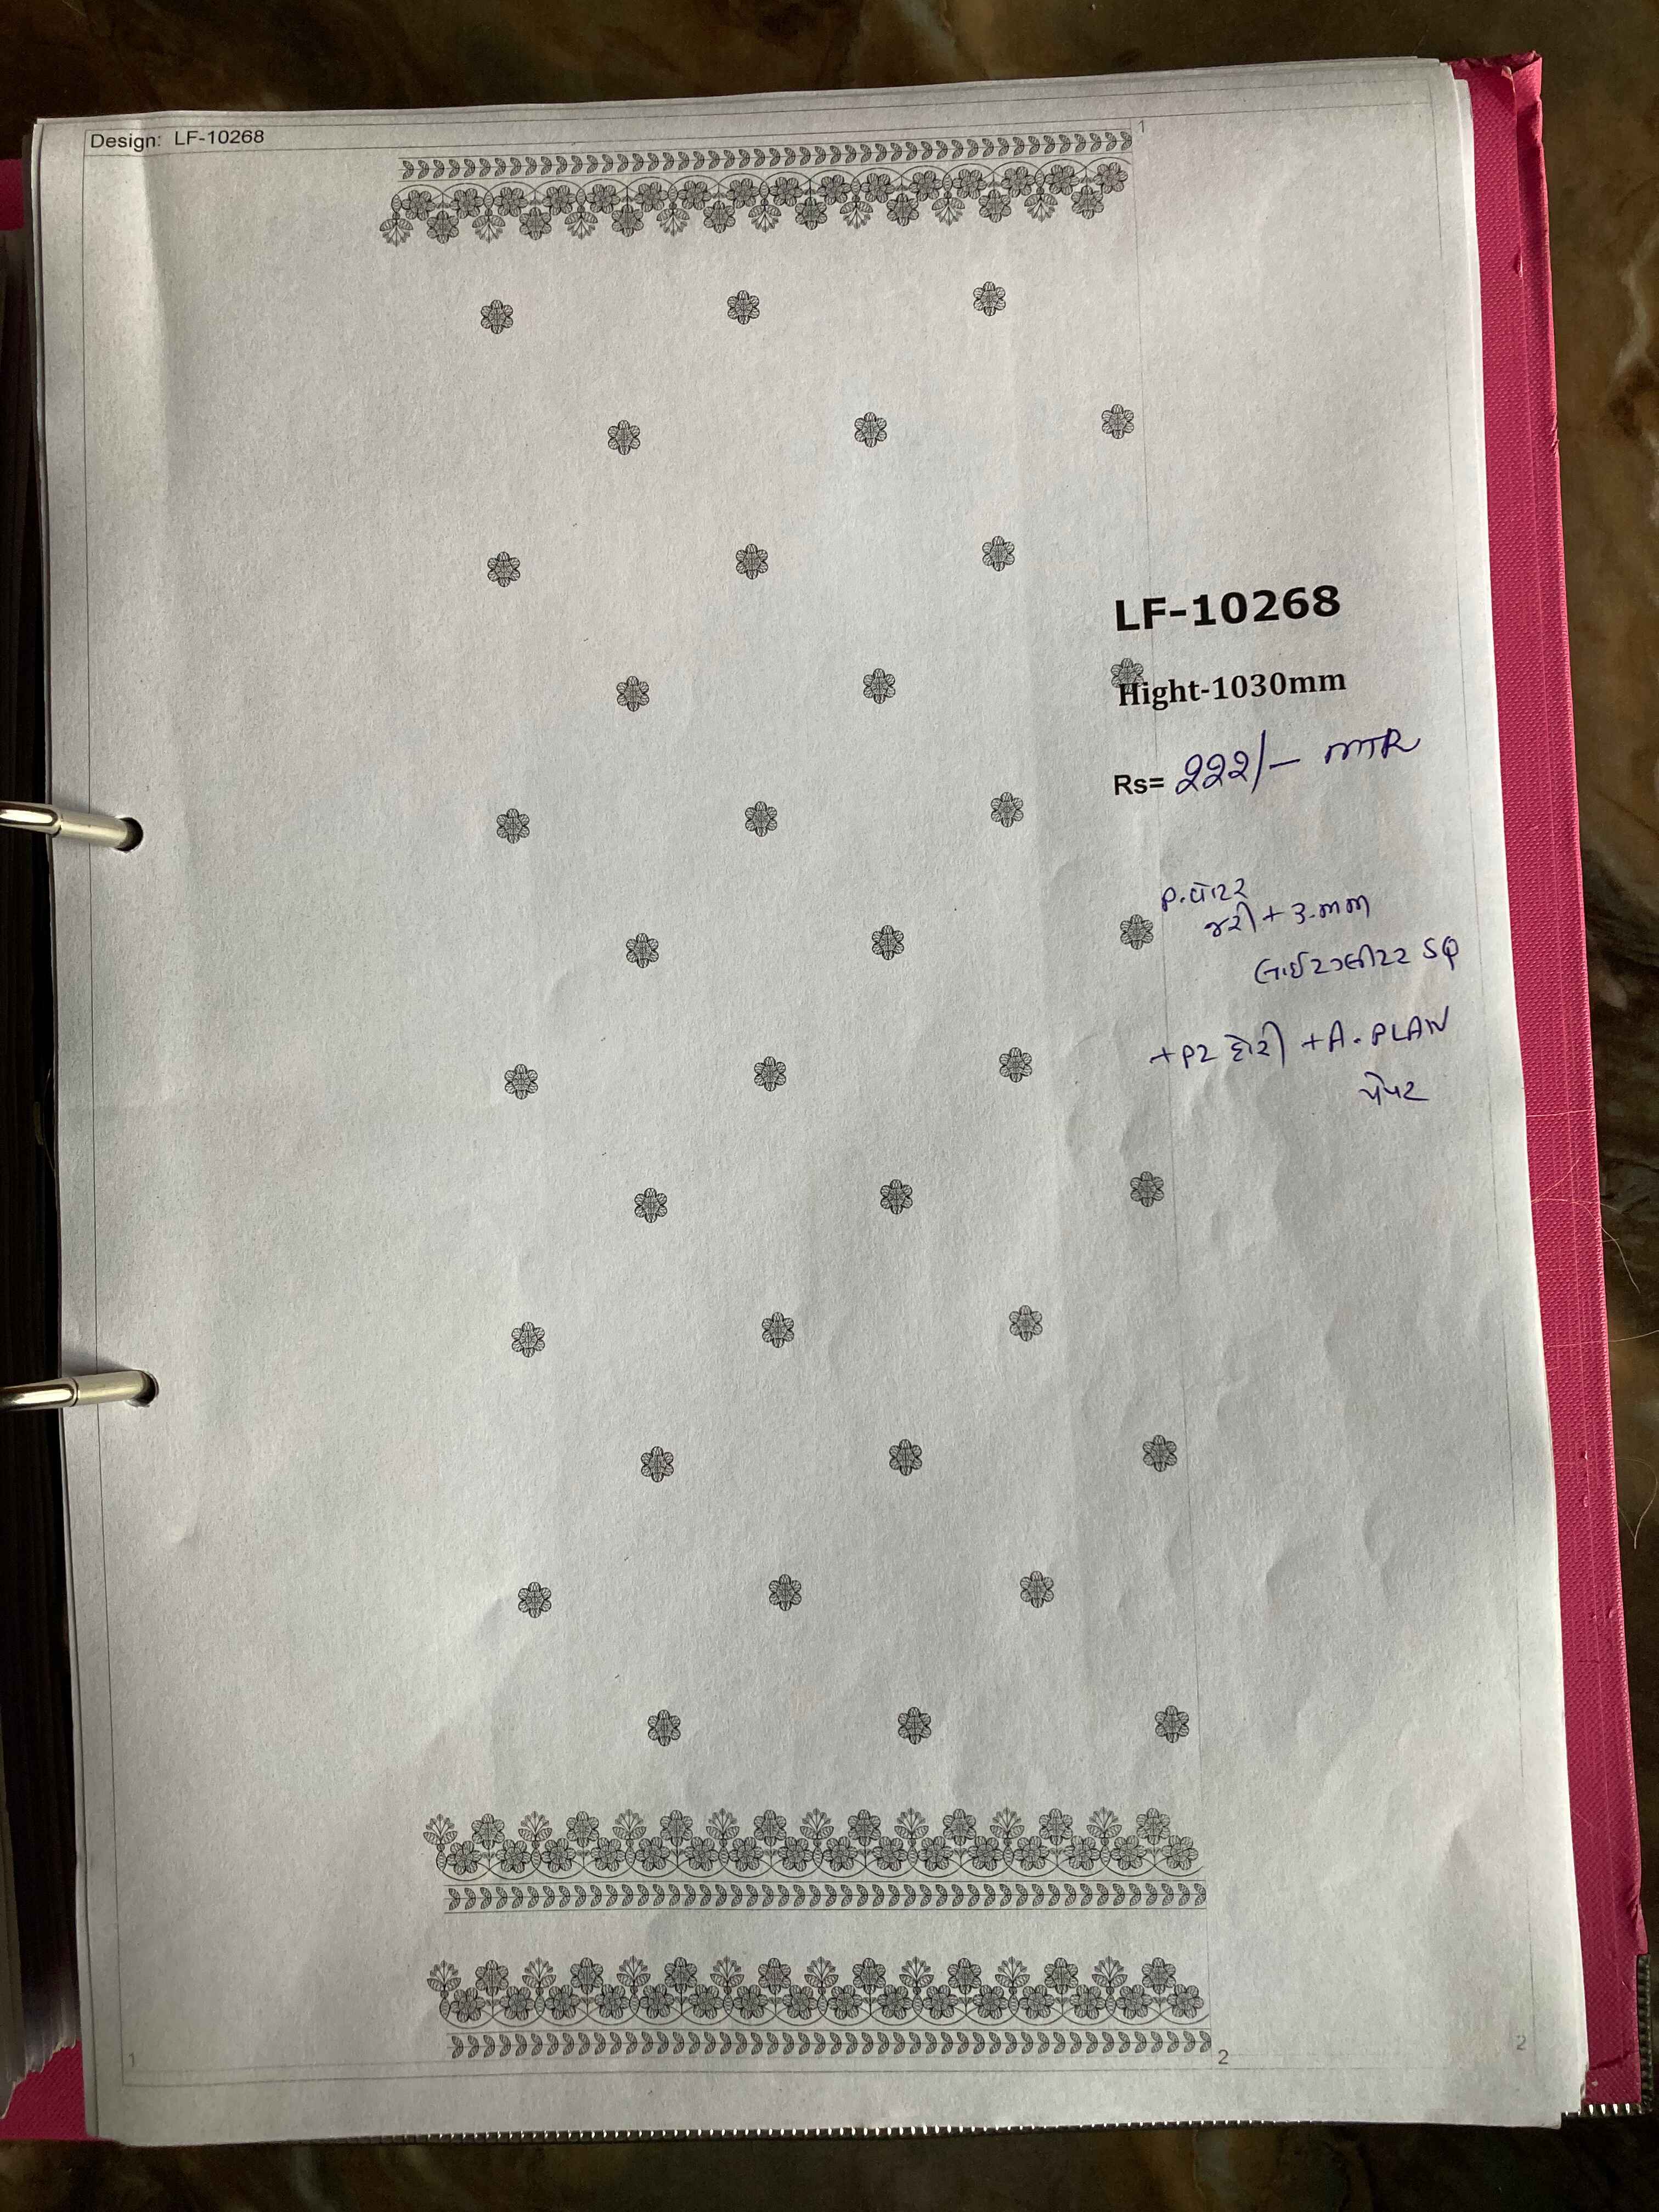 Design: LF-10268
1
LF-10268
Hight-1030mm
Rs= 222/- MTR
જરી + 3.mm
+ P2 દોરી + A. PLAN
પેપર
1
2
2